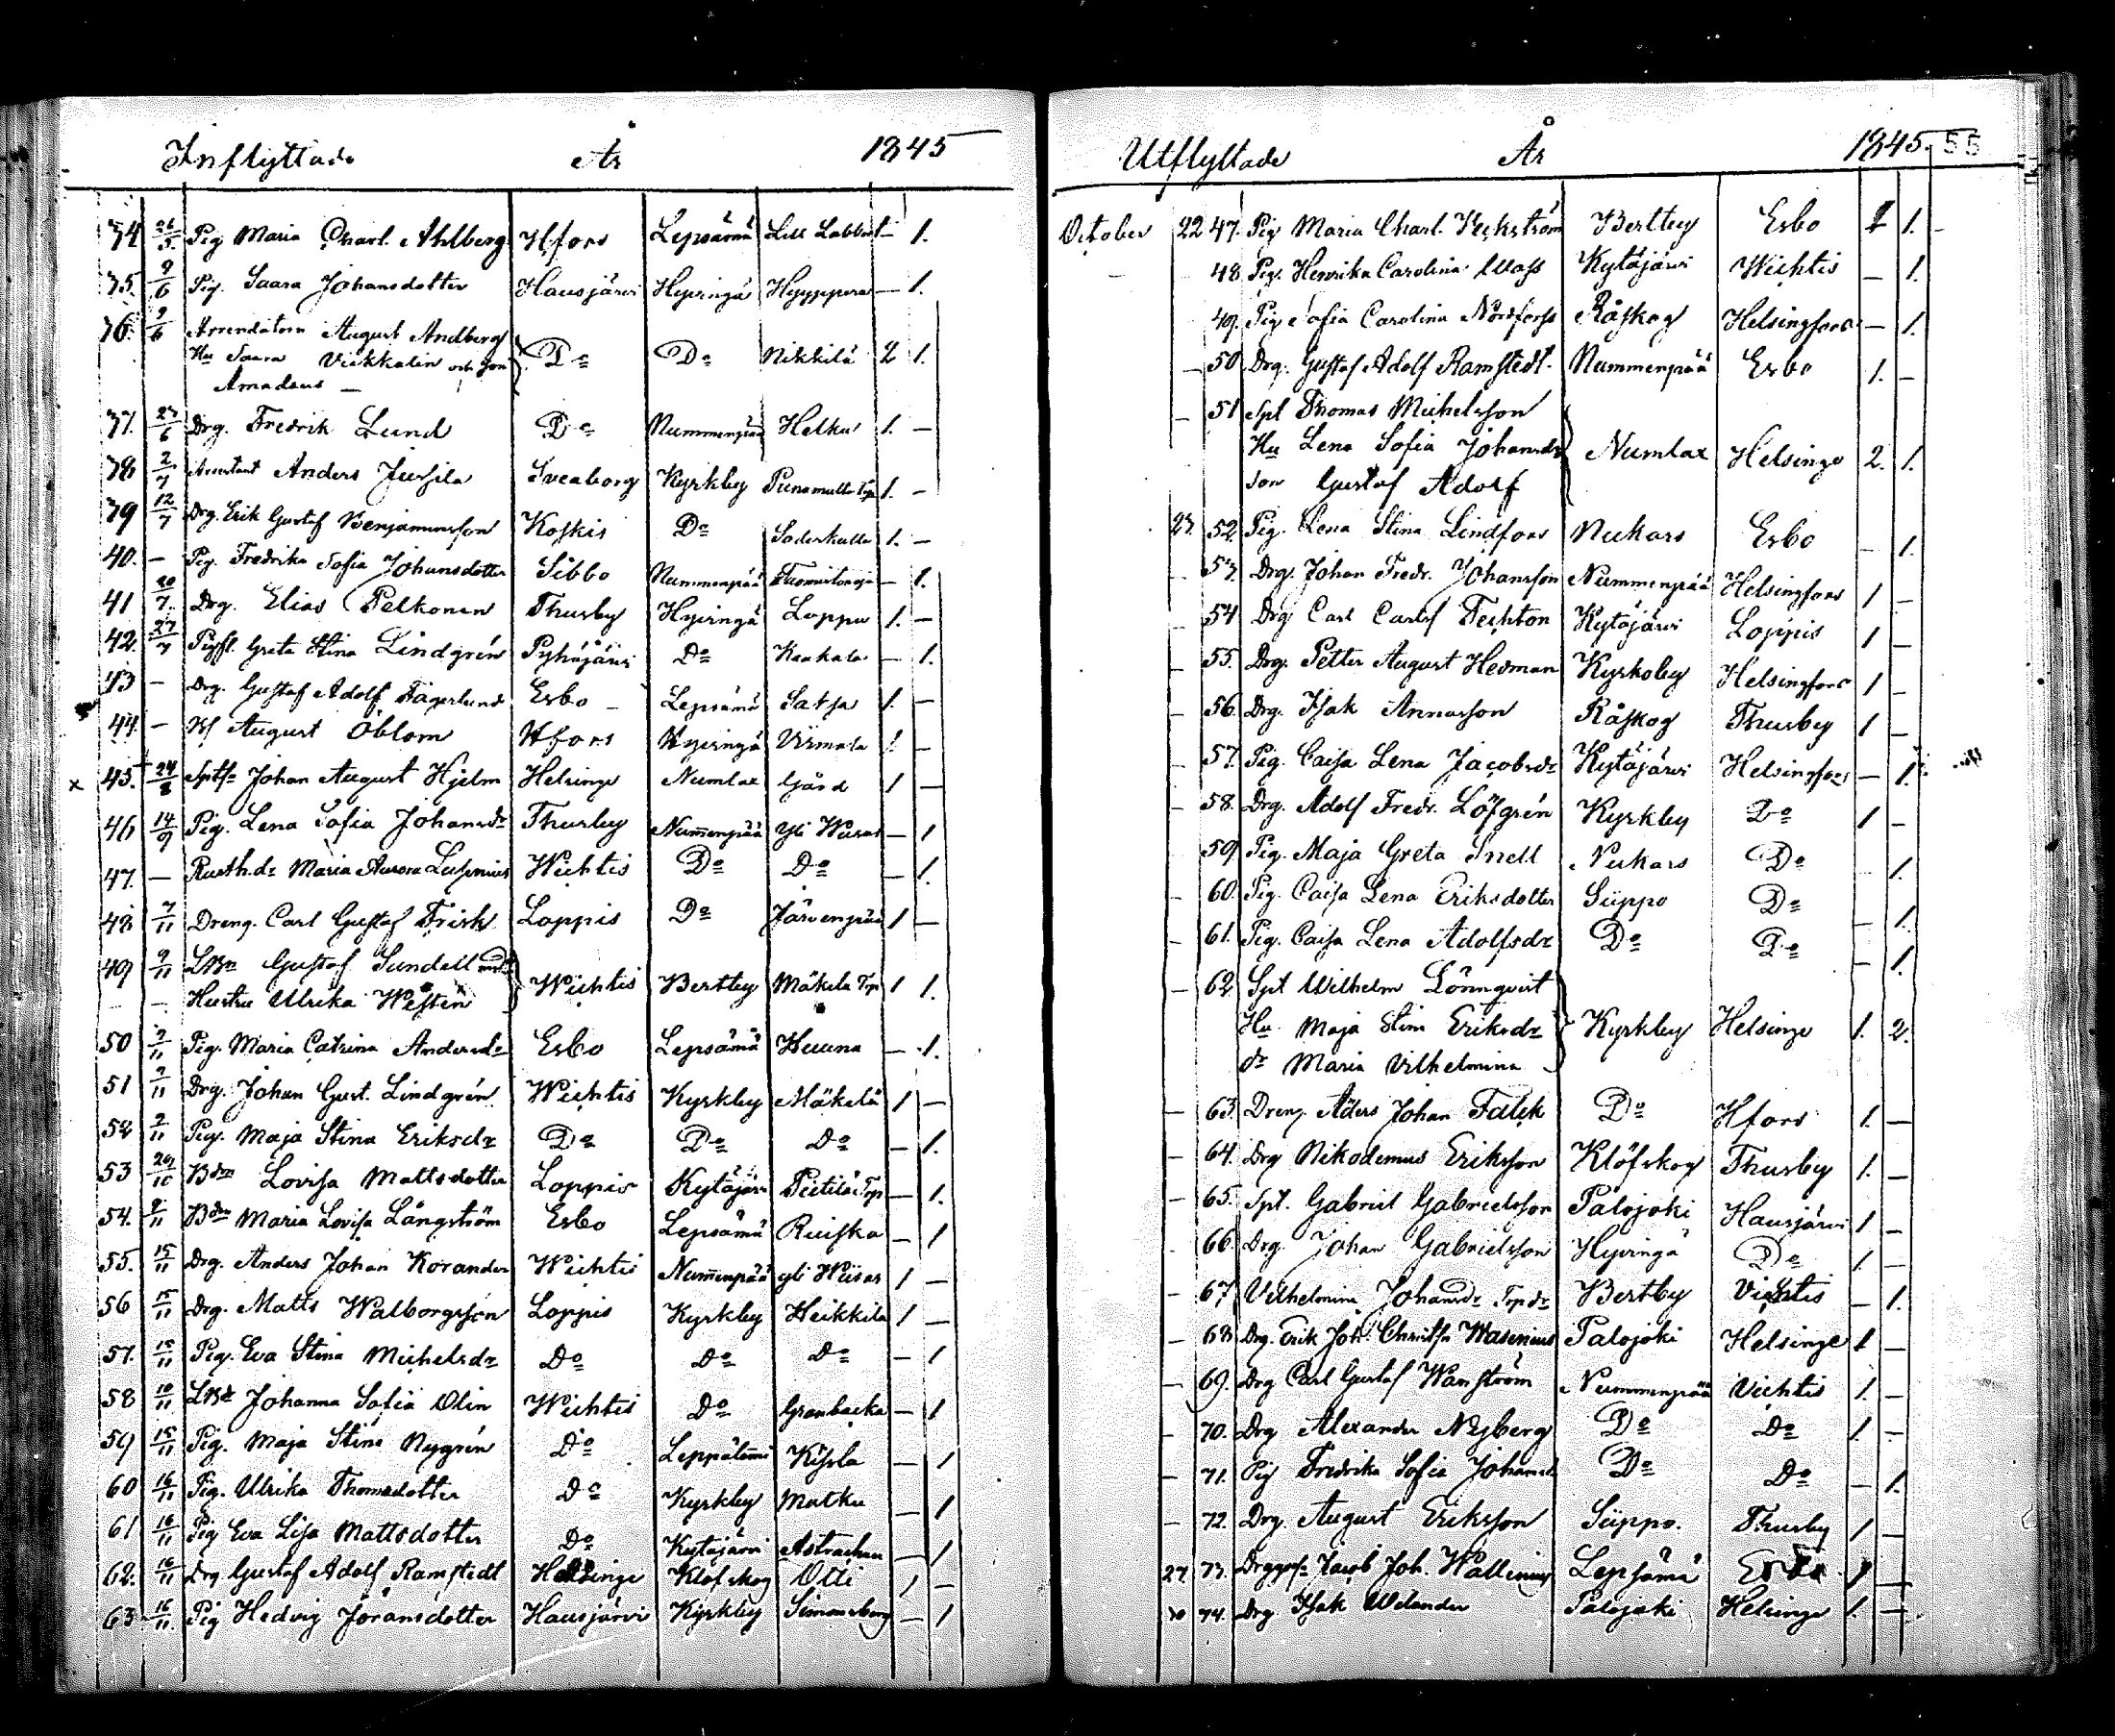 Inflyttade År 1845
34 26/5 Pig Maria Charl. Ahlberg Hfors Lepsämä Lill Labbas – 1.
35. 9/6 Pig. Saara Johansdotter Hausjärvi Hyvingä Hyyppärä – 1.
36. 9/6 Arrendatorn August Andberg
Hu Saara Veckkalin och Son Do Do Nikkilä 2 1.
Amadeus –
37. 27/6 Drg. Fredrik Lund Do Nummenpää Helkur 1. –
38 2/7 Anders Jussila Sveaborg Kyrkby Punamulta Trp 1. –
39 12/7 Drg. Erik Gustaf Benjaminsson Koskis Do Söderkulla 1. –
40. – Pig. Fredrika Sofia Johansdotter Sibbo Nummenpää – 1.
41 20/7. Drg. Elias Pelkonen Thusby Hyvingä Loppu 1. –
42. 27/7 Greta Stina Lindgrén Pyhäjärvi Do Kaukala – 1.
43 – Drg. Gustaf Adolf Fagerlund Esbo – Lepsämä Saksa 1. –
44. – August Öblom Hfors Hyvingä Virmala 1 –
x 45. 24/8 Johan August Hjelm Helsinge Numlax Gård 1 –
46 14/9 Pig. Lena Sofia Johansdr Thusby Nummenpää Yli Wiisas – 1
47. – Rusth.dr Maria Aurora Wichtis Do Do – 1.
48. 7/11 Dreng. Carl Gustaf Frisk Loppis Do Järvenpää 1 –
49 9/11 Gustaf Sundell med Wichtis Bertby Mäkelä Trp 1 1.
– – Hustru Ulrika Westin
50 9/11 Pig. Maria Catrina Andersdr Esbo Lepsämä Huuna – 1.
51 9/11 Drg. Johan Gust. Lindgrén Wichtis Kyrkby Mäkelä 1 –
52 9/11 Pig. Maja Stina Eriksdr Do Do Do – 1.
53 26/10 Lovisa Mattsdotter Loppis Kytäjärvi Pietilä Trp – 1.
54. 9/11 Maria Lovisa Långström Esbo Lepsämä Ruiska – 1
55. 15/11 Drg. Anders Johan Korander Wichtis Nummenpää yli Wiisas 1 –
56 15/11 Drg. Matts Walborgsson Loppis Kyrkby Heikkilä 1 –
57. 15/11 Pig. Eva Stina Michelsdr Do Do Do – 1
58 10/11 Johanna Sofia Olin Wichtis Do Granbacka – 1
59 15/11 Pig. Maja Stina Nygrén Do Leppälammi Kissla – 1
60 16/11 Pig. Ulrika Thomsdotter Do Kyrkby Matku – 1
61 16/11 Pig Eva Lisa Mattsdotter Do Kytäjärvi Astrachan – 1
62. 16/11 Drg Gustaf Adolf Ramstedt Helsinge Klöfskog Otti 1 –
63 16/11. Pig Hedvig Jöransdotter Hausjärvi Kyrkby Simonsberg – 1
Utflyttade År 1845. 55
October 22 47. Pig Maria Charl. Veckström Bertby Esbo 1.
– 48. Pig. Henrika Carolina Wass Kytäjärvi Wichtis – 1.
49. Pig Sofia Carolina Nordforss Råskog Helsingfors – 1.
– 50 Drg. Gustaf Adolf Ramstedt. Nummenpää Esbo 1. –
– 51 Spl Thomas Michelsson
Hu Lena Sofia Johansdr Numlax Helsinge 2. 1.
Son Gustaf Adolf
23. 52. Pig. Lena Stina Lindfors Nukars Esbo – 1.
– 53. Drg. Johan Fredr. Johansson Nummenpää Helsingfors 1 –
– 54 Drg Carl Carlsf Techton Kytäjärvi Loppis 1 –
– 55. Drg. Petter August Hedman Kyrkoby Helsingfors 1 –
– 56. Drg. Isak Annasson Råskog Thusby 1 –
– 57. Pig. Caisa Lena Jacobsdr Kytäjärvi Helsingfors – 1.
– 58. Drg. Adolf Fredr. Löfgrén Kyrkby Do 1 –
– 59. Pig. Maja Greta Snell Nukars Do – 1.
– 60. Pig. Caisa Lena Eriksdotter Siippo Do – 1.
– 61. Pig. Caisa Lena Adolfsdr Do Do – 1.
– 62 Spl Wilhelm Lönnqvist
Hu. Maja Stina Eriksdr Kyrkby Helsinge 1. 2.
dr Maria Vilhelmina
– 63. Dreng. Anders Johan Falck Do Hfors 1. –
– 64. Drg Nikodemus Eriksson Klöfskog Thusby 1. –
– 65. Spl. Gabriel Gabrielsson Palojoki Hausjärvi 1 –
66. Drg. Johan Gabrielsson Hyvingä Do 1 –
– 67. Vilhelmina Johansdr Trp dr Bertby Vichtis – 1.
– 68. Drg. Erik Joh. Wasenius Palojoki Helsinge 1 –
– 69. Drg Carl Gustaf Wanström Nummenpää Vichtis 1. –
– 70. Drg Alexander Nyberg Do Do 1. –
– 71. Pig Fredrika Sofia Johansd Do Do – 1.
– 72. Drg. August Eriksson Siippo. Thusby 1 –
27. 73. Jacob Joh. Wallenius Lepsämä Esbo 1 –
30 74. Drg Isak Welander Palojoki Helsinge 1. –